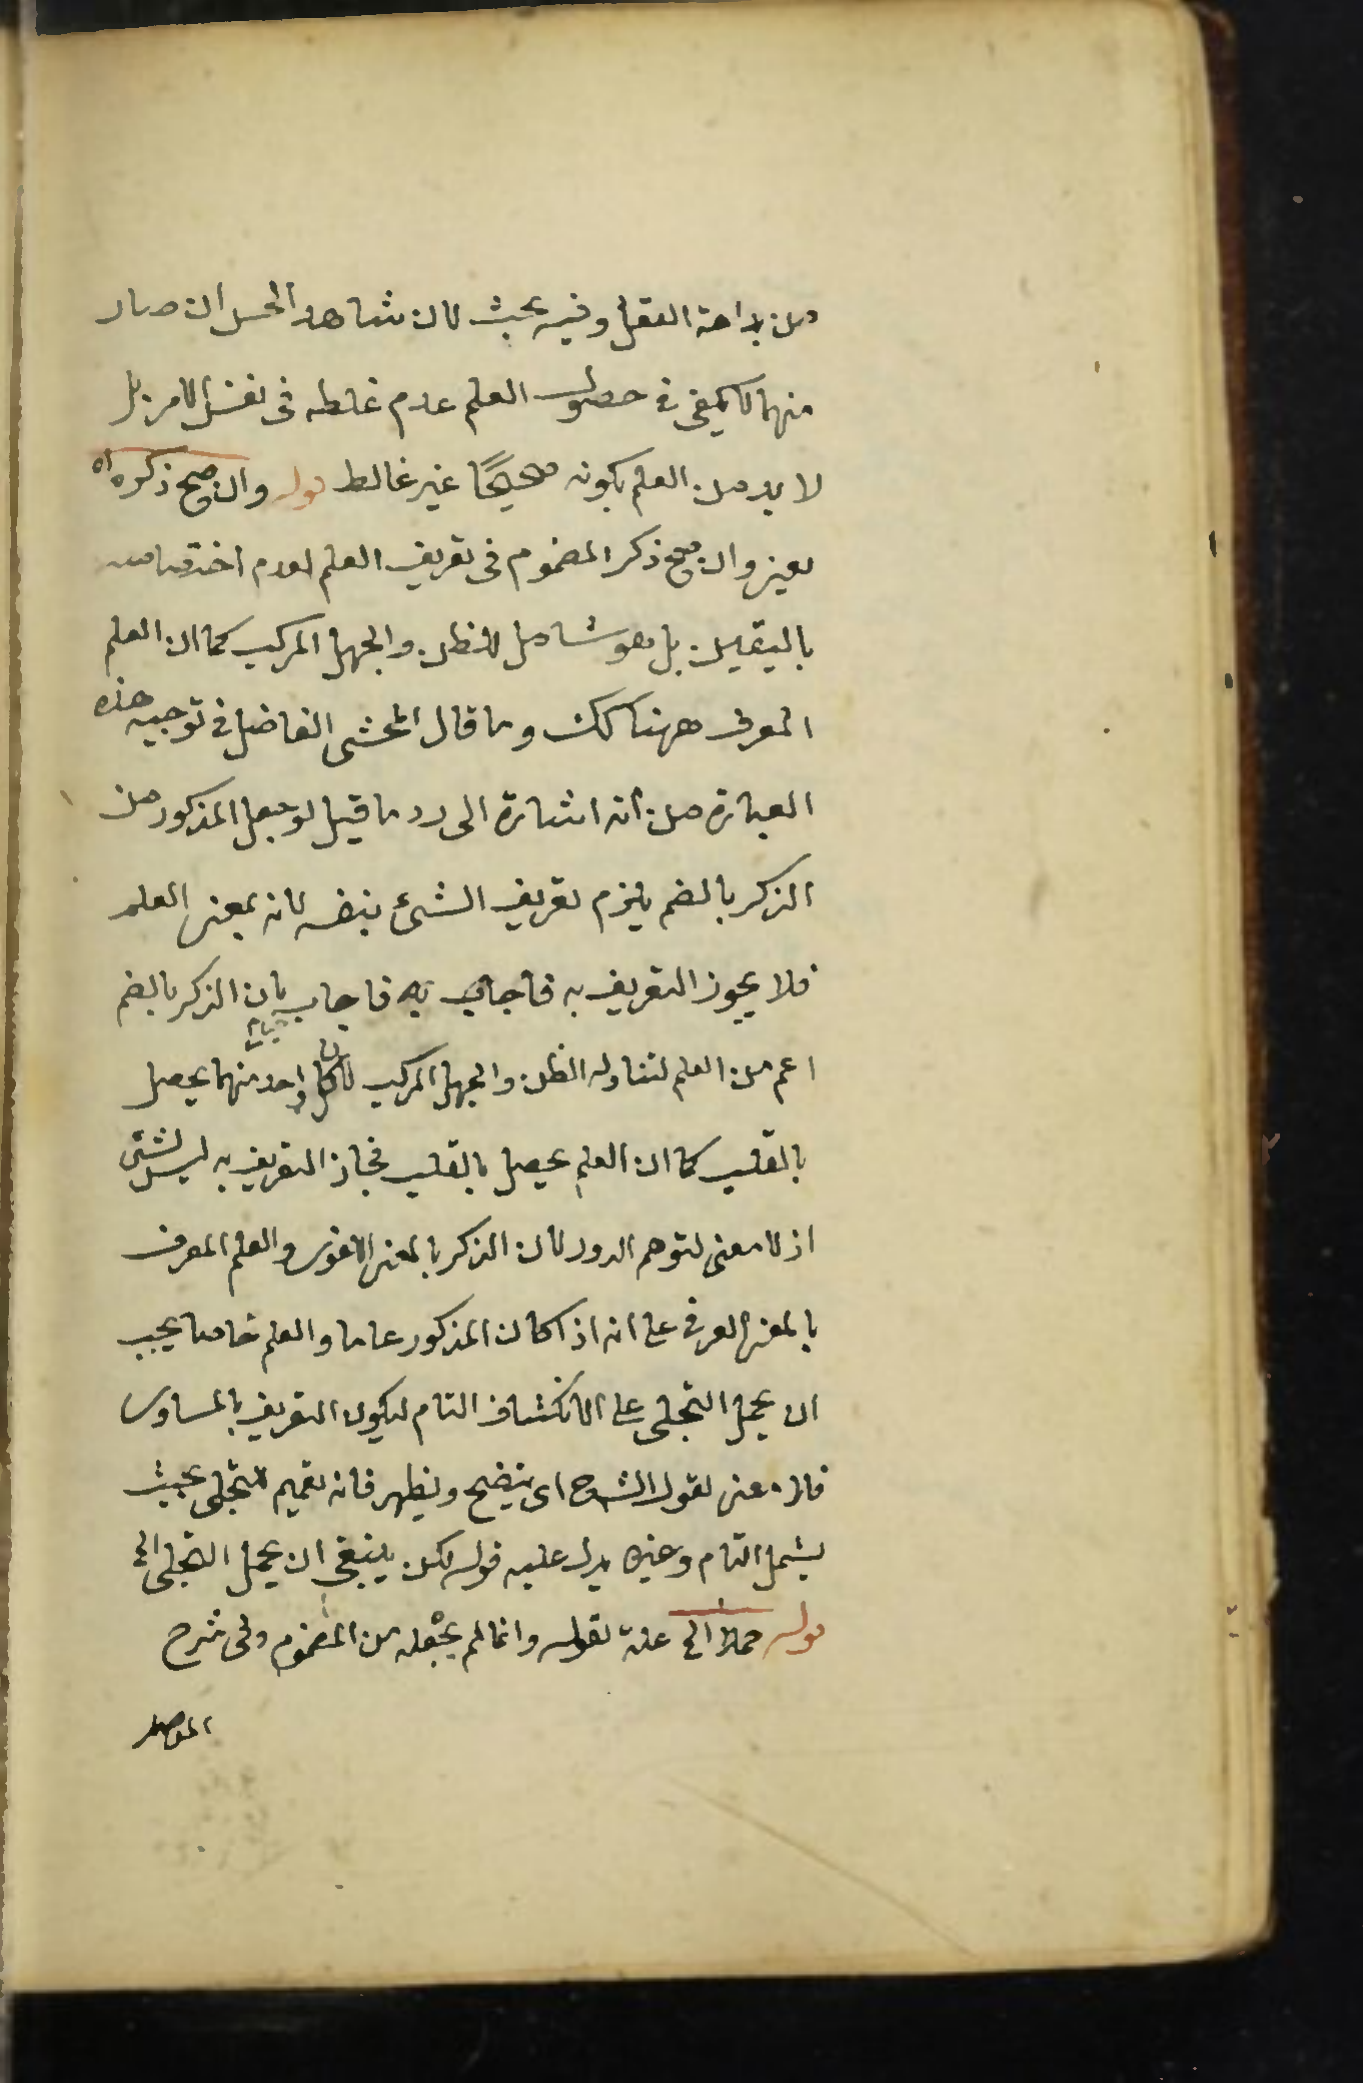 من بداهة العقل وفيه بحث لان شاهد الحس ان صار
منهما لا يكفى فى حصول العلم عدم غلطه فى نفس الامر بل
لا بد من العلم بكونه صحيحًا غير غالط قوله وان صح ذكره اه
يعنى وان صح ذكر المضموم فى تعريف العلم لعدم اختصاصه
باليقين بل هو شامل للظن والجهل المركب كما ان العلم
المعرف ههنا كك وما قال المحشى الفاضل فى توجيه هذه
العبارة من انه اشارة الى رد ما قيل لو جعل المذكور من
الذكر بالضم يلزم تعريف الشئ بنفسه لانه بمعنى العلم
فلا يجوز التعريف به فاجاب به فاجاب بان الذكر بالضم
اعم من العلم لتناوله الظن والجهل المركب لان كل واحد منهما يحصل
بالقلب كما ان العلم يحصل بالقلب فجاز التعريف به ليس بشئ
اذ لا معنى لتوهم الدور لان الذكر بالمعنى اللغوى والعلم المعرف
بالمعنى العرفى على انه اذا كان المذكور عاما والعلم خاصا يجب
ان يحمل التجلى على الانكشاف التام ليكون التعريف بالمساوى
فلا معنى لقول الشرح اى يتضح ويظهر فانه تعميم للتجلى بحيث
يشمل التام وغيره يدل عليه قوله لكن ينبغى ان يحمل التجلى الخ
قوله حملا الخ علة لقوله وانما لم يجعله من المضموم وفى شرح
المواصل